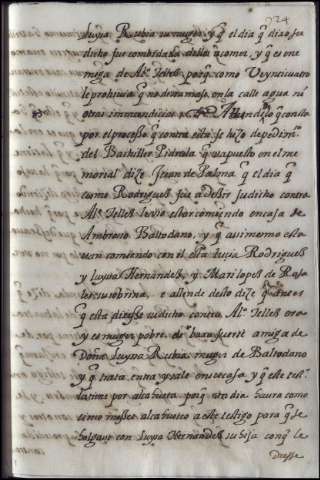 224
luysa Rubia su muger y q̃ el dia q̃ dixo su
dicho fue combidada della a q̃ comer, y q̃ es ene
miga de Alº Tellez porq̃ como Veyntiquatro
le prohiuia q̃ no derramase en la calle agua ni
otras immundicias y Atiendese q̃ consta
por el processo q̃ contra esta se hizo de pedimiº
del Bachiller Pidrola q̃ va puesto en el me
morial dize Juan de Palma q̃ el dia q̃
como Rodriguez fue a dessir su dicho contra
Alº Tellez la vio estar comiendo en casa de
Ambrosio Baltodano, y q̃ assimesmo esta
uan comiendo con el ella luysa Rodriguez
y luysa Hernandez, y Mari lopes de Ras
ter su sobrina, e allende desto dize q̃ antes
q̃ ella dixesse su dicho contra Alº Tellez era
y es muger pobre de buxa suerte amiga de
Doña luysa Rubia muger de Baltodano
y q̃ trata entra y sale en su casa y q̃ este tesº
la tiene por alcahueta porq̃ otro dia haura como
cinco meses alcahueteo a este testigo para q̃ se
holgase con luysa Hernandez su hija con q̃ le
Diesse